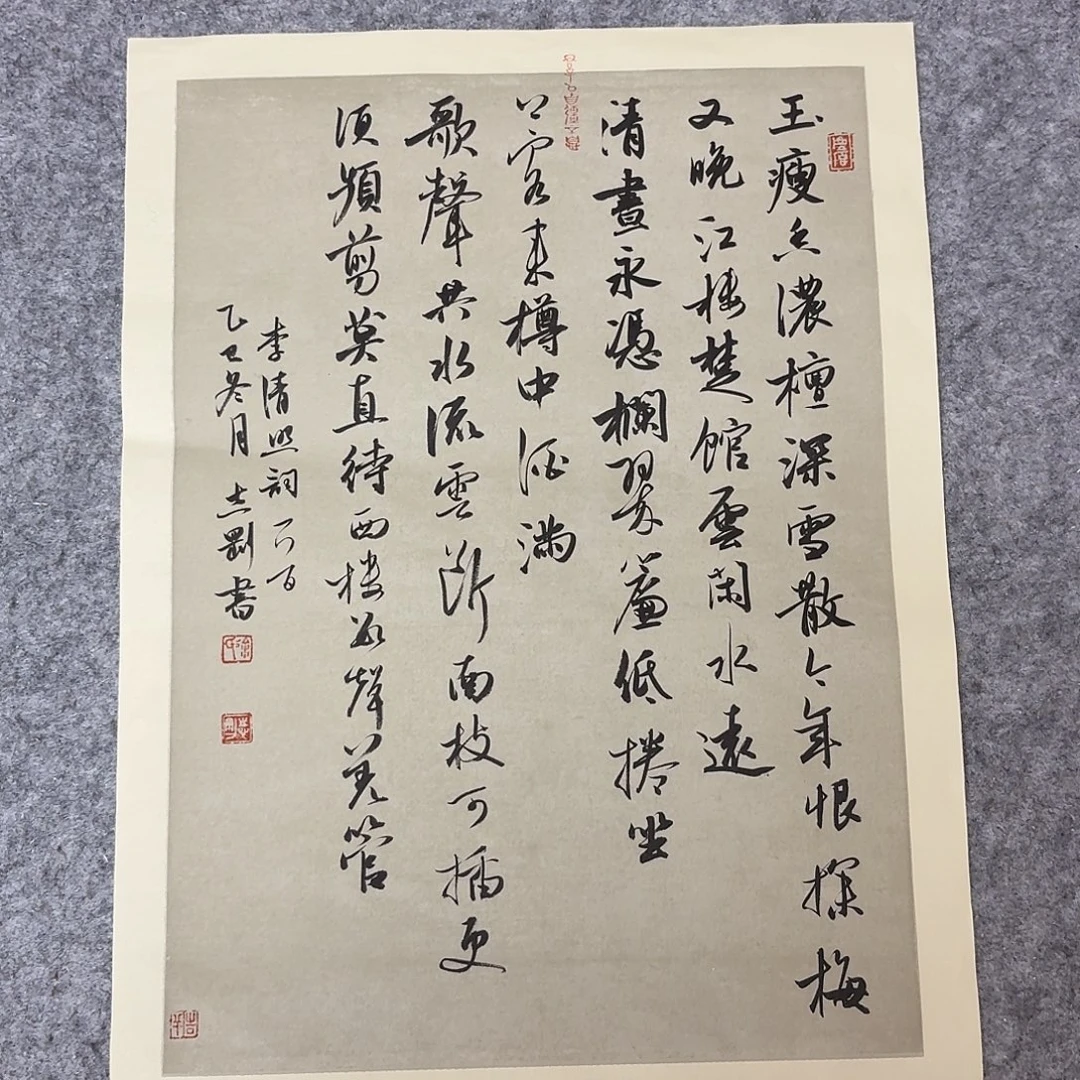 玉瘦香濃檀深雪散今年恨探梅
又晚江楼楚館雲閑水遠
清晝永憑欄翠簾低捲坐
上客来樽中酒滿
歌聲共水流雲断南枝可插更
須頻剪莫直待西楼数聲羌管
李清照詞一首
乙巳冬月 志剛書